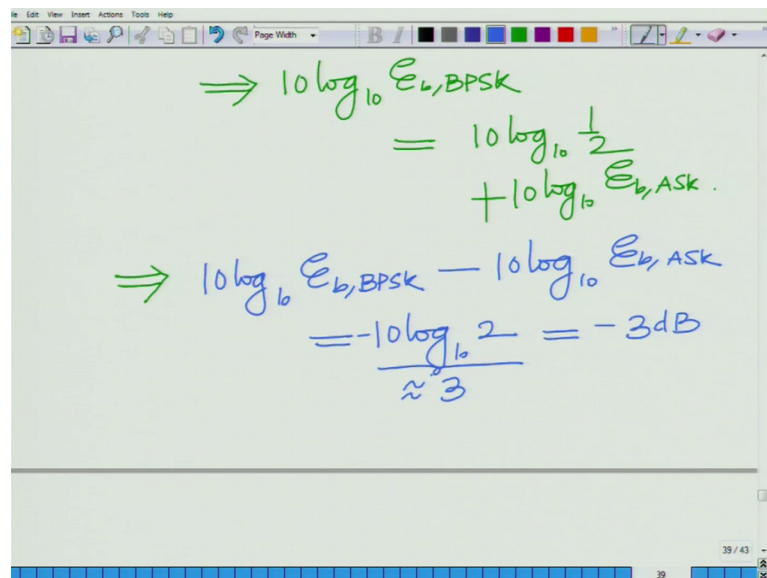 le Edit View Insert Actions Tools Help
Page Width B I
⇒ 10 log₁₀ ℰb,BPSK
= 10 log₁₀ 1/2
+ 10 log₁₀ ℰb,ASK .
⇒ 10 log₁₀ ℰb,BPSK — 10 log₁₀ ℰb,ASK
= -10 log₁₀ 2 = - 3 dB
≈ 3
39 / 43
39